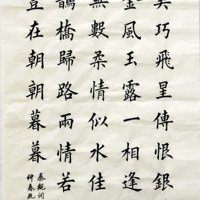 巧飛星傳恨銀
金風玉露一相逢
無數柔情似水佳
鵲橋歸路兩情若
豈在朝朝暮暮
秦觀詞
仲春